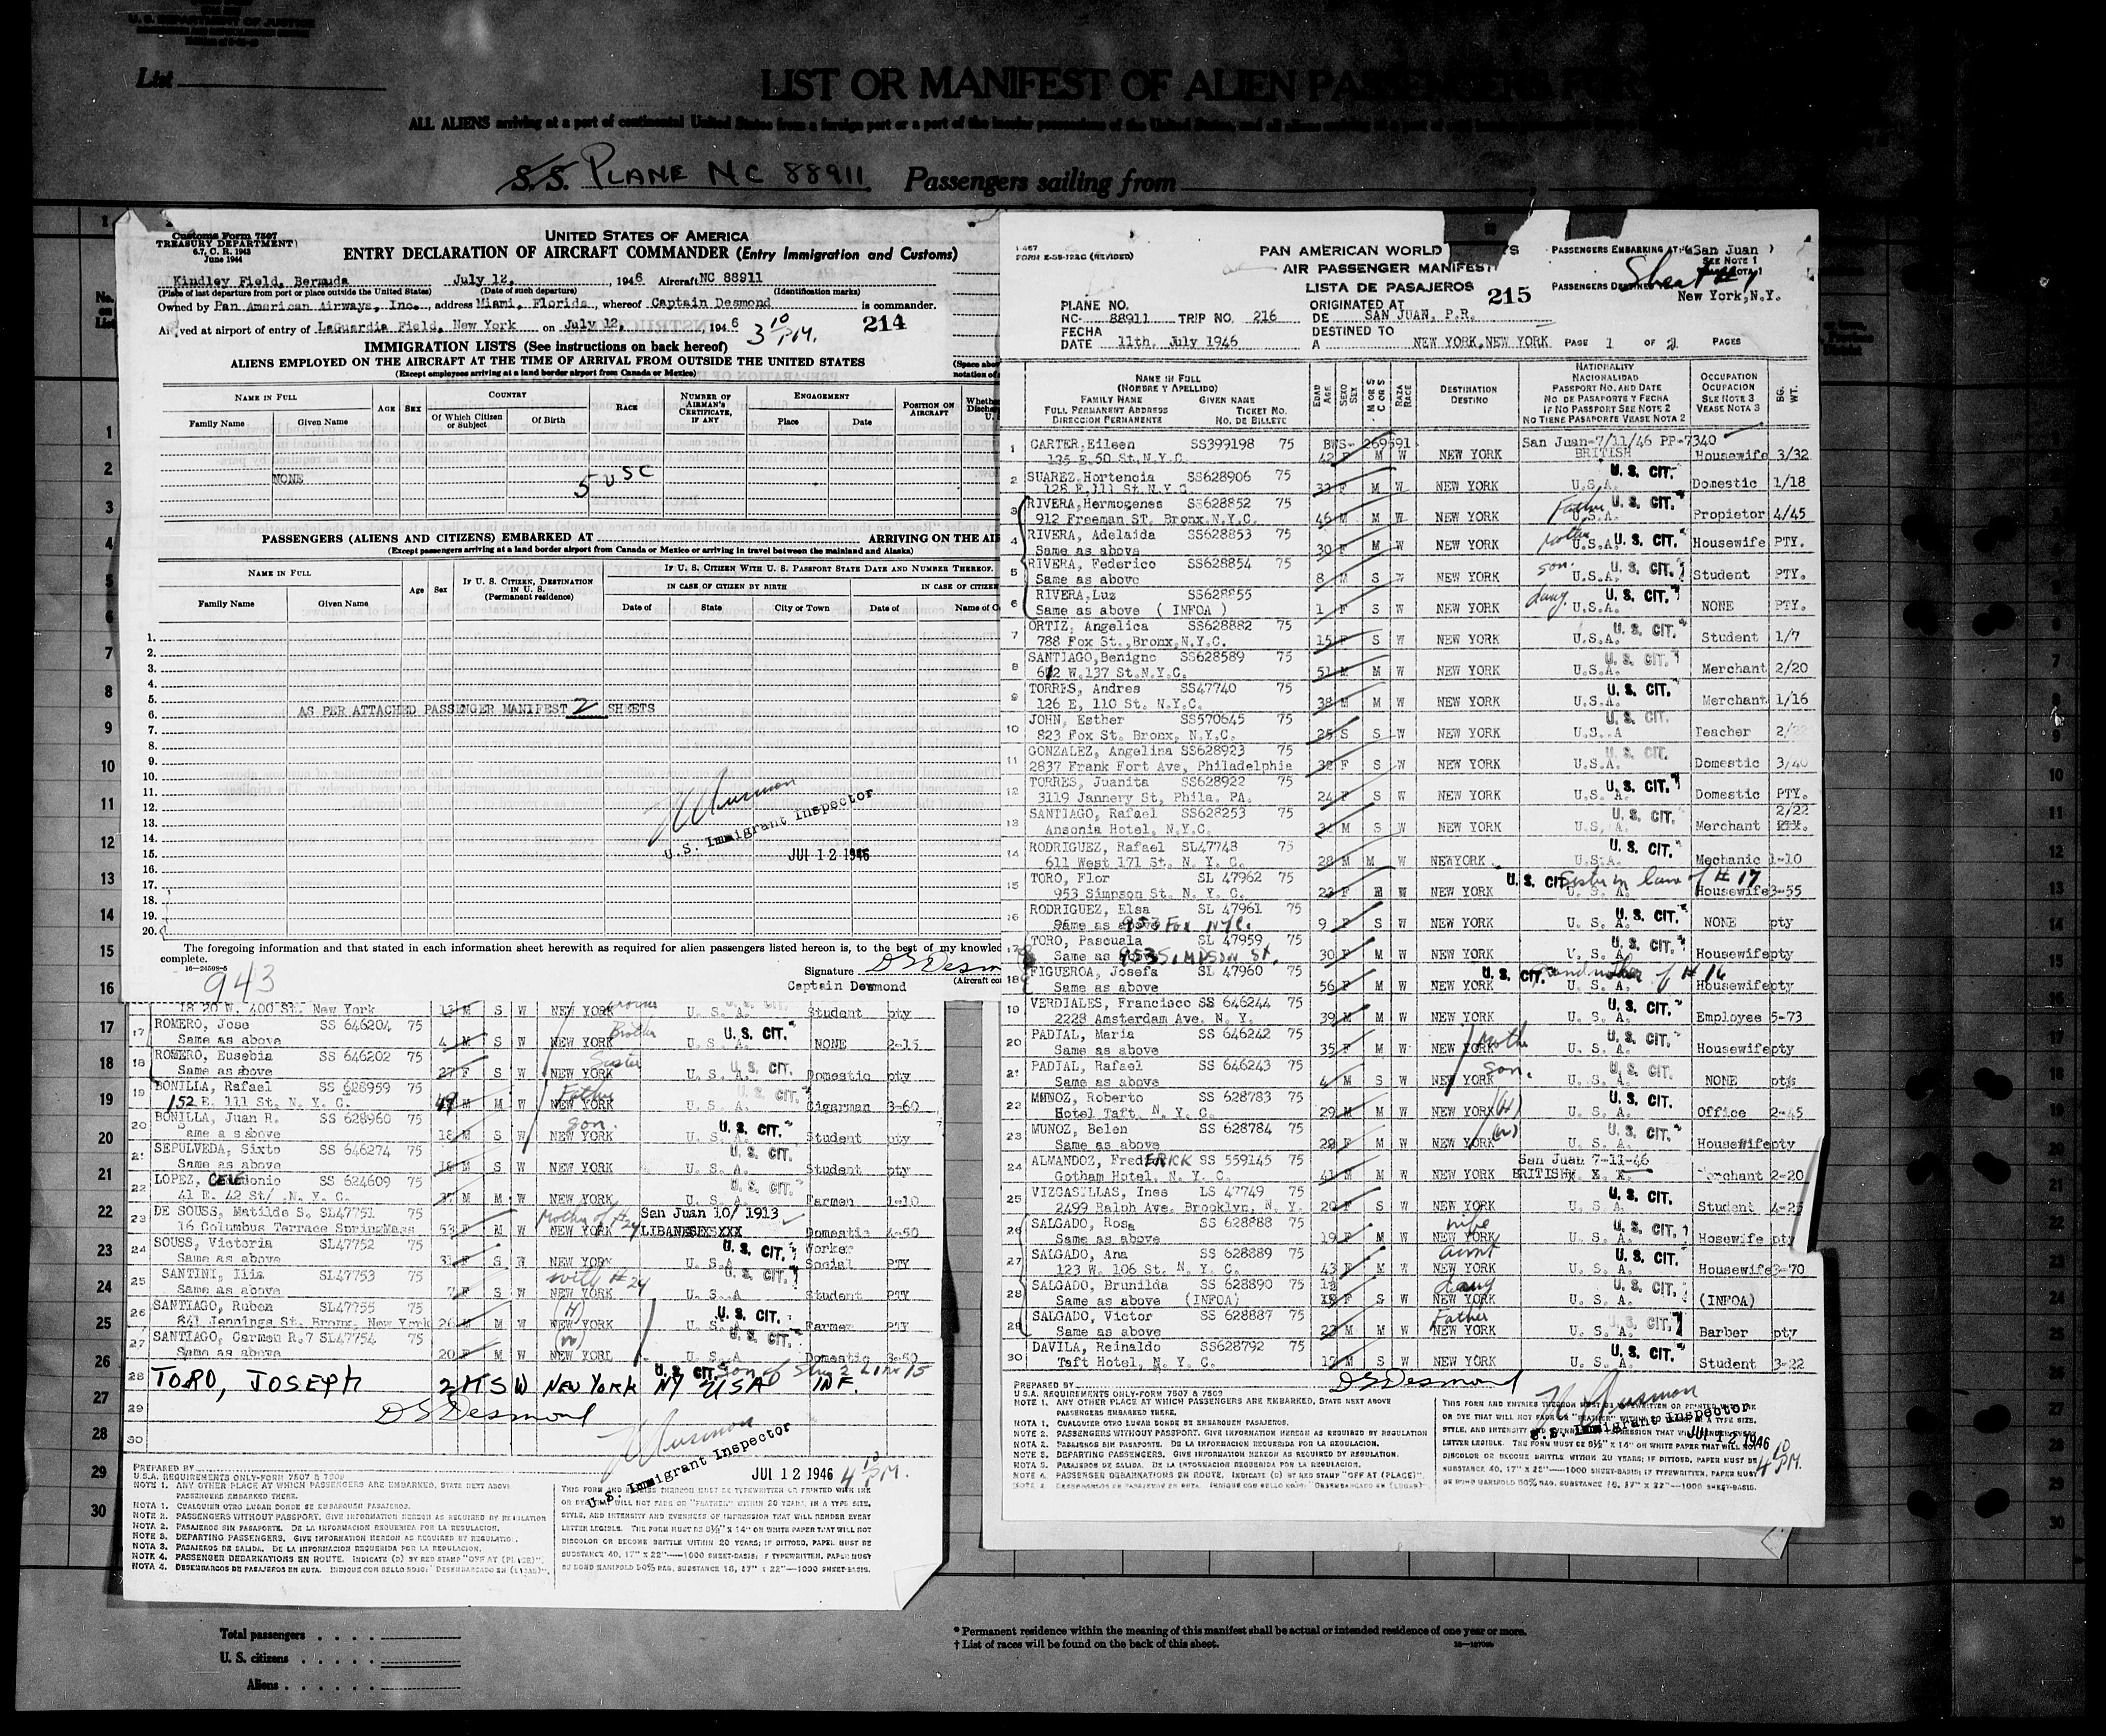 U. S. DEPARTMENT OF JUSTICE
List
LIST OR MANIFEST OF ALIEN PASSENGERS FOR
ALL ALIENS arriving at a port of continental United States from a foreign port or a port of the insular possessions of the United States, and all aliens
S.S. PLANE NC 88911 Passengers sailing from
Customs Form 7507
TREASURY DEPARTMENT
6.7, C. R. 1943
June 1944
UNITED STATES OF AMERICA
ENTRY DECLARATION OF AIRCRAFT COMMANDER (Entry Immigration and Customs)
Kindley Field, Bermuda July 12, 1946 Aircraft NC 88911
(Place of last departure from port or place outside the United States) (Date of such departure) (Identification marks)
Owned by Pan American Airways, Inc., address Miami, Florida, whereof Captain Desmond is commander.
Arrived at airport of entry of LaGuardia Field, New York on July 12, 1946 3 10 P.M. 214
IMMIGRATION LISTS (See instructions on back hereof)
ALIENS EMPLOYED ON THE AIRCRAFT AT THE TIME OF ARRIVAL FROM OUTSIDE THE UNITED STATES
(Except employees arriving at a land border airport from Canada or Mexico)
NAME IN FULL AGE SEX COUNTRY RACE NUMBER OF AIRMAN'S CERTIFICATE, IF ANY ENGAGEMENT POSITION ON AIRCRAFT
Family Name Given Name Of Which Citizen or Subject Of Birth Place Date
NONE 5 USC
PASSENGERS (ALIENS AND CITIZENS) EMBARKED AT ARRIVING ON THE AIR
(Except passengers arriving at a land border airport from Canada or Mexico or arriving in travel between the mainland and Alaska)
NAME IN FULL Age Sex IF U. S. CITIZEN, DESTINATION IN U. S. (Permanent residence) IF U. S. CITIZEN WITH U. S. PASSPORT STATE DATE AND NUMBER THEREOF.
IN CASE OF CITIZEN BY BIRTH IN CASE OF CITIZEN
Family Name Given Name Date of State City or Town Date of Name of
1.
2.
3.
4.
5.
6. AS PER ATTACHED PASSENGER MANIFEST 2 SHEETS
7.
8.
9.
10.
11.
12.
13.
14.
15.
16.
17.
18.
19.
20.
U.S. Immigrant Inspector
JUL 12 1946
The foregoing information and that stated in each information sheet herewith as required for alien passengers listed hereon is, to the best of my
complete.
16—24598-5
943
Signature DS Desm
Captain Desmond
18 20 W. 400 St. New York 13 M S W NEW YORK U. S. A. Student pty
17 ROMERO, Jose SS 646204 75 Brother U. S. CIT.
Same as above 4 M S W NEW YORK U. S. A. NONE 2-15
18 ROMERO, Eusebia SS 646202 75 Sister U. S. CIT.
Same as above 27 F S W NEW YORK U. S. A. Domestic pty
19 BONILLA, Rafael SS 628959 75 Father U. S. CIT.
152 E. 111 St. N. Y. C. 49 M M W NEW YORK U. S. A. Cigarman 3-60
20 BONILLA, Juan R. SS 628960 75 son. U. S. CIT.
Same a s above 18 M S W NEW YORK U. S. A. Student pty
21 SEPULVEDA, Sixto SS 646274 75 U. S. CIT.
Same as above 18 M S W NEW YORK U. S. A. Student pty
22 LOPEZ, CELEdonio SS 624609 75 U. S. CIT.
41 E. 42 St/ .N. Y. C. 37 M M W NEW YORK U. S. A. Farmen 1-10
23 DE SOUSS, Matilde S. SL47751 75 Mother of #24 San Juan 10/ 1913
16 Columbus Terrace SpringMass 53 F M W NEW YORK Domestic 4-50
24 SOUSS, Victoria SL47752 75 U. S. CIT. Worker
Same as above 31 F S W NEW YORK U. S. A Social PTY
25 SANTINI, Ilia SL47753 75 with #24 U. S. CIT.
Same as above 7 F S W NEW YORK U. S. A Student PTY
26 SANTIAGO, Ruben SL47755 75 (H) U. S. CIT.
841 Jennings St. Bronx, New York 26 M M W NEW YORK U. S. A. Farmer PTY
27 SANTIAGO, Carmen R.7 SL47754 75 (W) U. S. CIT.
Same as above 20 F M W NEW YORL U. S. A Domestic 3-50
28 TORO, JOSEPH 2 M S W NEW YORK NY USA U. S. CIT. son of Line 15 INF.
29 DS Desmond
30
U.S. Immigrant Inspector JUL 12 1946 4 10 P.M.
PREPARED BY
U.S.A. REQUIREMENTS ONLY-FORM 7507 & 7509
NOTE 1. ANY OTHER PLACE AT WHICH PASSENGERS ARE EMBARKED, STATE NEXT ABOVE
PASSENGERS EMBARKED THERE.
NOTA 1. CUALQUIER OTRO LUGAR DONDE SE EMBARQUEN PASAJEROS.
NOTE 2. PASSENGERS WITHOUT PASSPORT. GIVE INFORMATION HEREON AS REQUIRED BY REGULATION
NOTA 2. PASAJEROS SIN PASAPORTE. DE LA INFORMACION REQUERIDA POR LA REGULACION.
NOTE 3. DEPARTING PASSENGERS. GIVE INFORMATION HEREON AS REQUIRED BY REGULATION.
NOTA 3. PASAJEROS DE SALIDA. DE LA INFORMACION REQUERIDA POR LA REGULACION.
NOTE 4. PASSENGER DEBARKATIONS EN ROUTE. INDICATE (D) BY RED STAMP "OFF AT (PLACE)".
NOTA 4. DESEMBARCOS DE PASAJEROS EN RUTA. INDIQUE CON SELLO ROJO: "DESEMBARCADO EN (LUGAR)".
THIS FORM AND ENTRIES THEREON MUST BE TYPEWRITTEN OR PRINTED WITH INK
OR DYE THAT WILL NOT FADE OR "FEATHER" WITHIN 20 YEARS, IN A TYPE SIZE,
STYLE, AND INTENSITY AND EVENNESS OF IMPRESSION THAT WILL RENDER EVERY
LETTER LEGIBLE. THE FORM MUST BE 8½" X 14" ON WHITE PAPER THAT WILL NOT
DISCOLOR OR BECOME BRITTLE WITHIN 20 YEARS; IF DITTOED, PAPER MUST BE
SUBSTANCE 40, 17" X 22"—1000 SHEET-BASIS; IF TYPEWRITTEN, PAPER MUST
BE BOND MANIFOLD 50% RAG, SUBSTANCE 16, 17" X 22"—1000 SHEET-BASIS.
FORM E-58-123C (REVISED)
PAN AMERICAN WORLD
AIR PASSENGER MANIFEST
LISTA DE PASAJEROS 215
PASSENGERS EMBARKING AT San Juan
SEE NOTE 1
Sheet #1
PASSENGERS DESTINED New York, N.Y.
PLANE NO.
NC- 88911 TRIP NO. 216
ORIGINATED AT
DE SAN JUAN, P.R.
FECHA
DATE 11th. July 1946
DESTINED TO
A NEW YORK, NEW YORK PAGE 1 OF 2 PAGES
NAME IN FULL
(NOMBRE Y APELLIDO)
FAMILY NAME GIVEN NAME
FULL PERMANENT ADDRESS TICKET NO.
DIRECCION PERMANENTE NO. DE BILLETE
EDAD AGE SEXO SEX M OR S C OR S RAZA RACE
DESTINATION
DESTINO
NATIONALITY
NACIONALIDAD
PASSPORT NO. AND DATE
NO. DE PASAPORTE Y FECHA
IF NO PASSPORT SEE NOTE 2
NO TIENE PASAPORTE VEASE NOTA 2
OCCUPATION
OCUPACION
SEE NOTE 3
VEASE NOTA 3
BG. WT.
1 CARTER, Eileen SS399198 75 BWS- 269591 San Juan-7/11/46 PP-7340
125 E. 50 St. N.Y.C. 42 F M W NEW YORK BRITISH Housewife 3/32
2 SUAREZ, Hortencia SS628906 75 U. S. CIT.
128 E. 111 St. N.Y.C. 32 F M W NEW YORK U.S.A. Domestic 1/18
3 RIVERA, Hermogenes SS628852 75 Father U. S. CIT.
912 Freeman ST. Bronx. N.Y.C. 46 M M W NEW YORK U.S.A. Propietor 4/45
4 RIVERA, Adelaida SS628853 75 Mother U. S. CIT.
Same as above 30 F M W NEW YORK U.S.A. Housewife PTY.
5 RIVERA, Federico SS628854 75 son. U. S. CIT.
Same as above 8 M S W NEW YORK U.S.A. Student PTY.
6 RIVERA, Luz SS628855 daug. U. S. CIT.
Same as above ( INFOA ) 1 F S W NEW YORK U.S.A. NONE PTY.
7 ORTIZ, Angelica SS628882 75 U. S. CIT.
788 Fox St., Bronx, N.Y.C. 15 F S W NEW YORK U.S.A. Student 1/7
8 SANTIAGO, Benigno SS628589 75 U. S. CIT.
612 W. 137 St. N.Y.C. 51 M M W NEW YORK U.S.A. Merchant 2/20
9 TORRES, Andres SS47740 75 U. S. CIT.
126 E, 110 St. N.Y.C. 38 M M W NEW YORK U.S.A. Merchant 1/16
10 JOHN, Esther SS570645 75 U. S. CIT.
823 Fox St. Bronx, N.Y.C. 25 S S W NEW YORK U.S. A Teacher
11 GONZALEZ, Angelina SS628923 75 U. S. CIT.
2837 Frank Fort Ave, Philadelphia 38 F S W NEW YORK U.S.A. Domestic 3/40
12 TORRES, Juanita SS628922 75 U. S. CIT.
3119 Jannery St, Phila. PA. 24 F S W NEW YORK U.S. A. Domestic PTY.
13 SANTIAGO, Rafael SS628253 75 U. S. CIT. 2/22
Ansonia Hotel, N.Y.C. M S W NEW YORK U.S. A. Merchant PTY.
14 RODRIGUEZ, Rafael SL47748 75 U. S. CIT.
611 West 171 St. N. Y. C. 28 M M W NEWYORK U.S.A. Mechanic 1-10
15 TORO, Flor SL 47962 75 U. S. CIT. Sister in law of #17
953 Simpson St. N. Y. C. 23 F M W NEW YORK U. S. A. Housewife 3-55
16 RODRIGUEZ, Elsa SL 47961 75 U. S. CIT.
Same as above 953 Fox NYC. 9 F S W NEW YORK U. S. A. NONE pty
17 TORO, Pascuala SL 47959 75 U. S. CIT.
Same as 953 SIMPSON St. 30 F M W NEW YORK U. S. A. Housewife pty
18 FIGUEROA, Josefa SL 47960 75 U. S. CIT. Grandmother of #16
Same as above 56 F M W NEW YORK U. S. A. Housewife pty
19 VERDIALES, Francisco SS 646244 75 U. S. CIT.
2228 Amsterdam Ave. N. Y. 39 M M W NEW YORK U. S. A. Employee 5-73
20 PADIAL, Maria SS 646242 75 Mothe U. S. CIT.
Same as above 35 F M W NEW YORK U. S. A. Housewife pty
21 PADIAL, Rafael SS 646243 75 son. U. S. CIT.
Same as above 4 M S W NEW YORK U. S. A. NONE pty
22 MUNOZ, Roberto SS 628783 75 (H) U. S. CIT.
Hotel Taft N. Y. C. 29 M M W NEW YORK U. S. A. Office 2-45
23 MUNOZ, Belen SS 628784 75 (W) U. S. CIT.
Same as above 22 F M W NEW YORK U. S. A. Housewife pty
24 ALMANDOZ, FredERICK SS 559145 75 San Juan 7-11-46
Gotham Hotel, N. Y. C. 41 M M W NEW YORK BRITISH Merchant 2-20
25 VIZCASILLAS, Ines LS 47749 75 U. S. CIT.
2499 Ralph Ave. Brooklyn, N. Y. 20 F S W NEW YORK U. S. A. Student 4-25
26 SALGADO, Rosa SS 628888 75 wife U. S. CIT.
Same as above 19 F M W NEW YORK U. S. A. Hosewife pty
27 SALGADO, Ana SS 628889 75 aunt U. S. CIT.
123 W. 106 St. N. Y. C. 43 F M W NEW YORK U. S. A. Housewife 3-70
28 SALGADO, Brunilda SS 628890 75 daug U. S. CIT.
Same as above (INFOA) F S W NEW YORK U. S. A. (INFOA)
29 SALGADO, Victor SS 628887 75 Father U. S. CIT.
Same as above 22 M M W NEW YORK U. S. A. Barber pty
30 DAVILA, Reinaldo SS628792 75 U. S. CIT.
Taft Hotel, N. Y. C. 17 M S W NEW YORK U. S. A. Student 3-22
DS Desmond
U.S. Immigrant Inspector
JUL 12 1946 4 10 P.M.
PREPARED BY
U.S.A. REQUIREMENTS ONLY-FORM 7507 & 7509
NOTE 1. ANY OTHER PLACE AT WHICH PASSENGERS ARE EMBARKED, STATE NEXT ABOVE
PASSENGERS EMBARKED THERE.
NOTA 1. CUALQUIER OTRO LUGAR DONDE SE EMBARQUEN PASAJEROS.
NOTE 2. PASSENGERS WITHOUT PASSPORT. GIVE INFORMATION HEREON AS REQUIRED BY REGULATION
NOTA 2. PASAJEROS SIN PASAPORTE. DE LA INFORMACION REQUERIDA POR LA REGULACION.
NOTE 3. DEPARTING PASSENGERS. GIVE INFORMATION HEREON AS REQUIRED BY REGULATION.
NOTA 3. PASAJEROS DE SALIDA. DE LA INFORMACION REQUERIDA POR LA REGULACION.
NOTE 4. PASSENGER DEBARKATIONS EN ROUTE. INDICATE (D) BY RED STAMP "OFF AT (PLACE)".
Total passengers
U. S. citizens
Aliens
* Permanent residence within the meaning of this manifest shall be actual or intended residence of one year or more.
† List of races will be found on the back of this sheet.